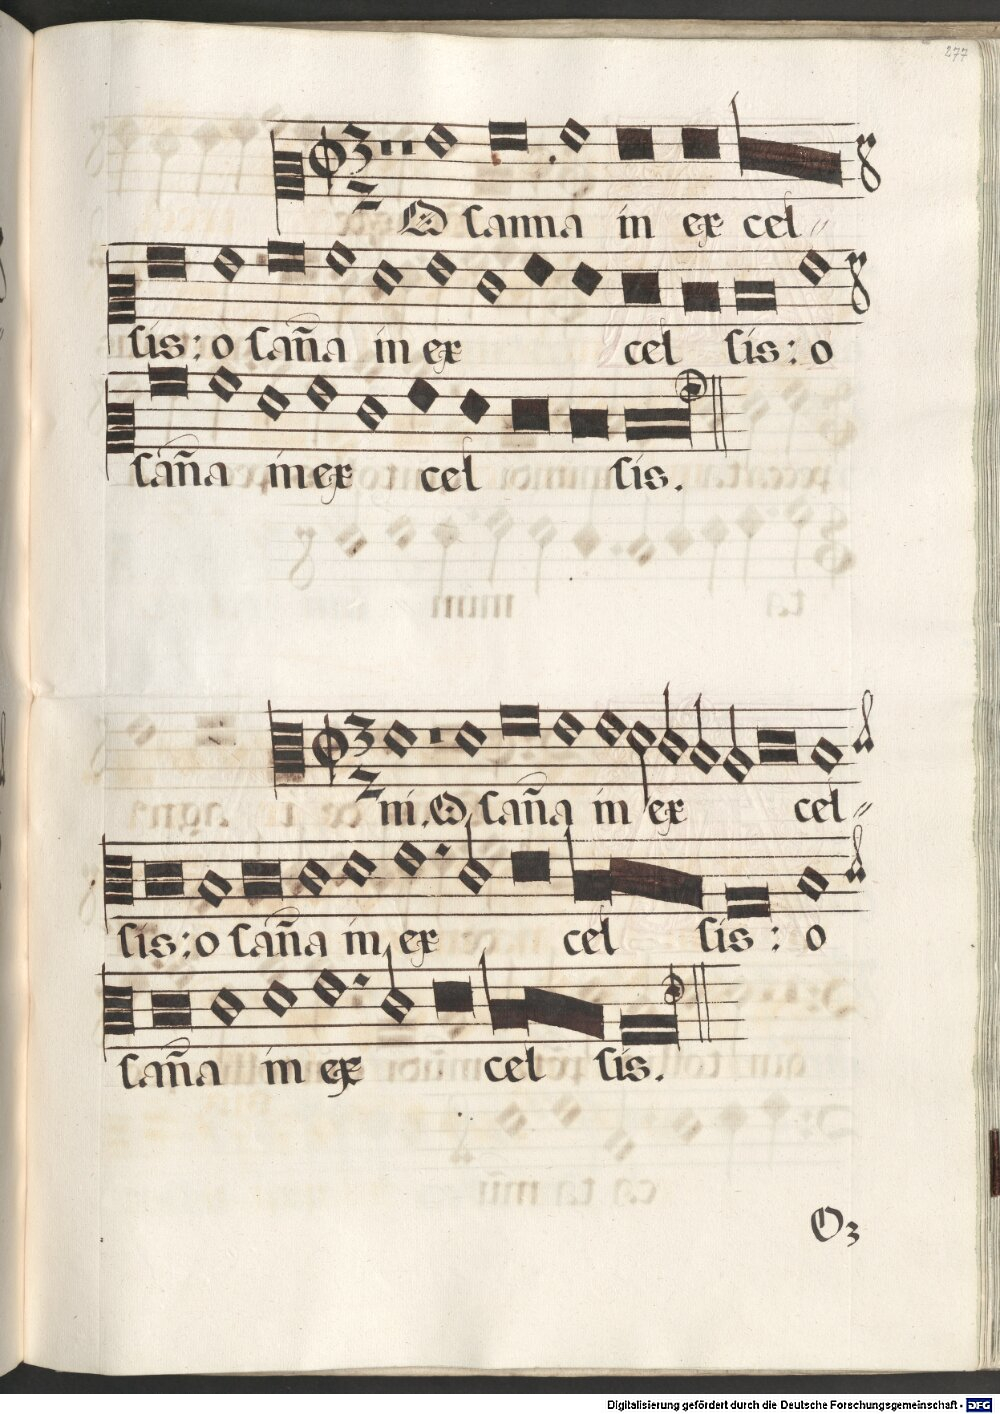 277
O sanna in ex cel〃
sis: o san̄a in ex cel sis: o
san̄a in ex cel sis.
ni. O san̄a in ex cel〃
sis: o san̄a in ex cel sis: o
san̄a in ex cel sis.
O3
Digitalisierung gefördert durch die Deutsche Forschungsgemeinschaft - DFG